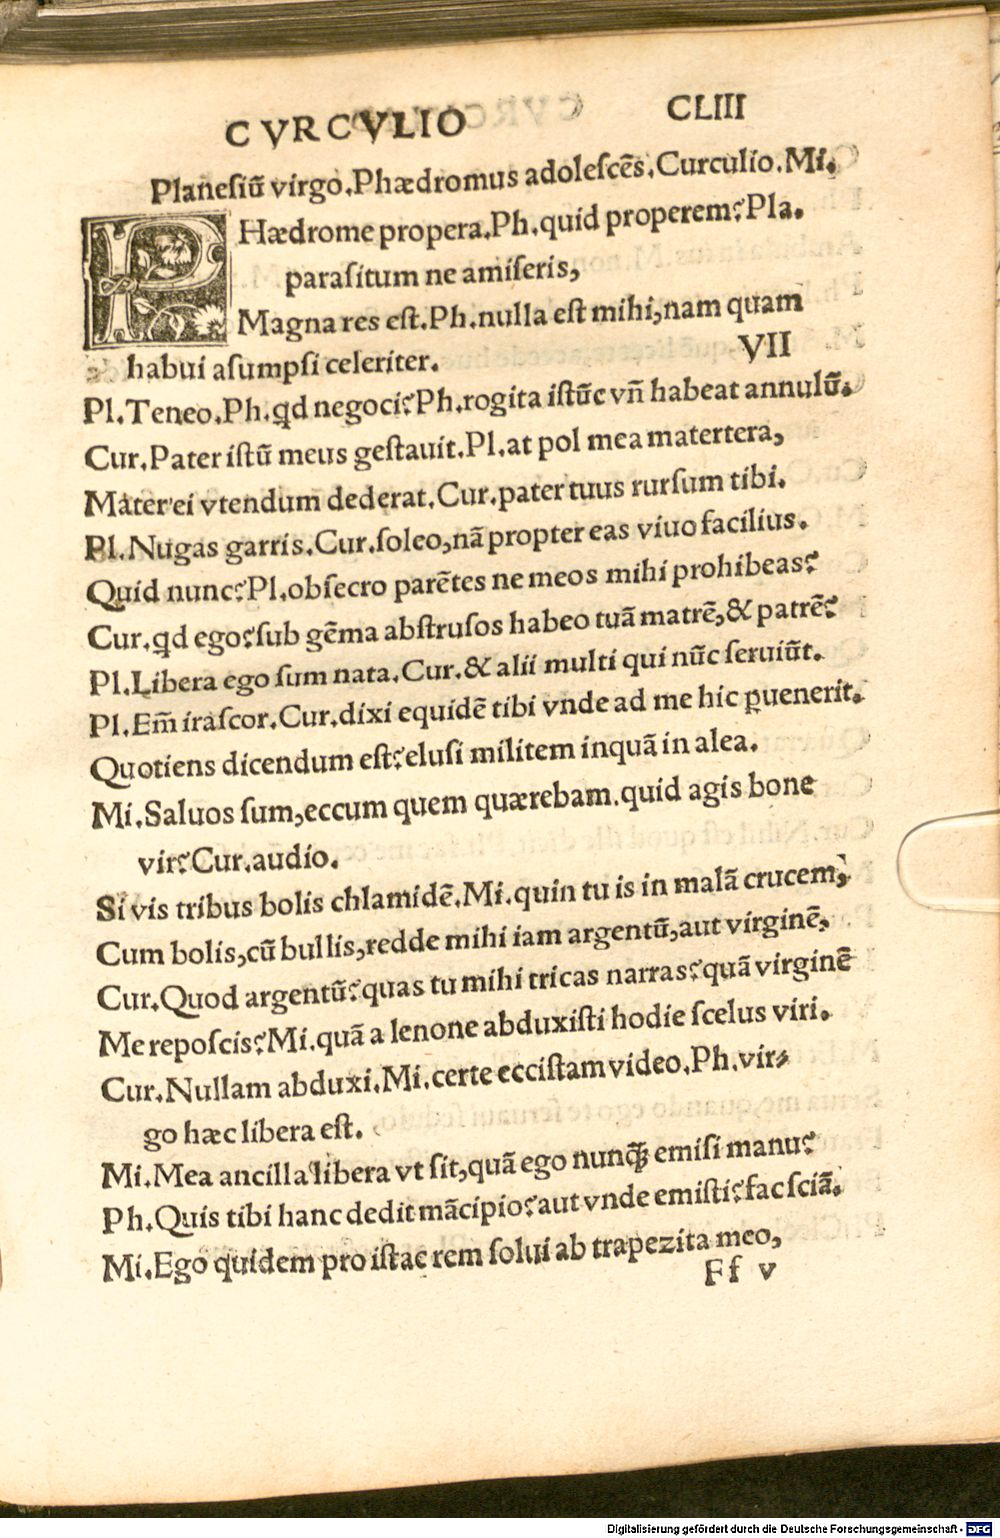 CVRCVLIO CLIII
Planesiũ virgo.Phædromus adolescẽs.Curculio.Mi.
PHædrome propera.Ph.quid properem?Pla.
parasitum ne amiseris,
Magna res est.Ph.nulla est mihi,nam quam
habui asumpsi celeriter. VII
Pl.Teneo.Ph.qd negoci?Ph.rogita istũc vñ habeat annulũ.
Cur.Pater istũ meus gestauit.Pl.at pol mea matertera,
Mater ei vtendum dederat.Cur.pater tuus rursum tibi.
Pl.Nugas garris.Cur.soleo,nã propter eas viuo facilius.
Quid nunc?Pl.obsecro parẽtes ne meos mihi prohibeas?
Cur.qd ego?sub gẽma abstrusos habeo tuã matrẽ,& patrẽ?
Pl.Libera ego sum nata.Cur.& alii multi qui nũc seruiũt.
Pl.Em̃ irascor.Cur.dixi equidẽ tibi vnde ad me hic ꝑuenerit.
Quotiens dicendum est?elusi militem inquã in alea.
Mi.Saluos sum,eccum quem quærebam.quid agis bone
vir?Cur.audio.
Si vis tribus bolis chlamidẽ.Mi.quin tu is in malã crucem,
Cum bolis,cũ bullis,redde mihi iam argentũ,aut virginẽ,
Cur.Quod argentũ?quas tu mihi tricas narras?quã virginẽ
Me reposcis?Mi.quã a lenone abduxisti hodie scelus viri.
Cur.Nullam abduxi.Mi.certe eccistam video.Ph.vir-
go hæc libera est.
Mi.Mea ancilla libera vt sit,quã ego nunꝗ̃ emisi manu?
Ph.Quis tibi hanc dedit mãcipio?aut vnde emisti?fac sciã.
Mi.Ego quidem pro istac rem solui ab trapezita meo,
Ff v
Digitalisierung gefördert durch die Deutsche Forschungsgemeinschaft - DFG